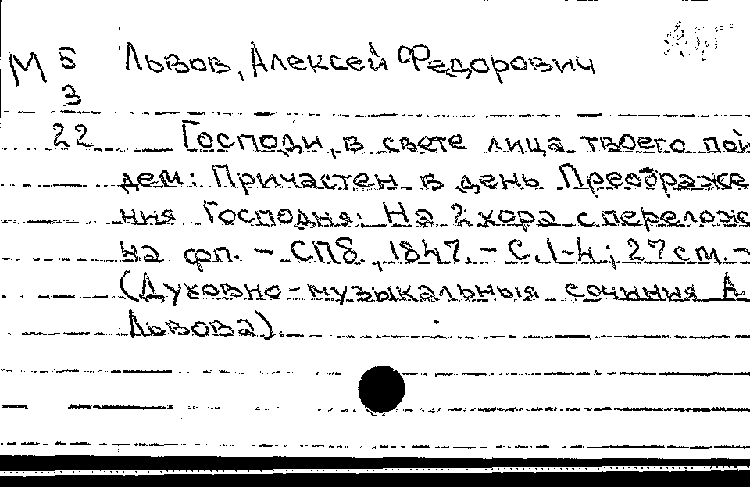 М 5 Львов, Алексей Федорович
3
22 Господи, в свете лица твоего пой
дем: Причастен в день Преображе
ния Господня: На 2 хора с перелож
на фп. - СПб, 1847. - С. 1-4; 27 см. -
(Духовно-музыкальныя сочиния А.
Львова).